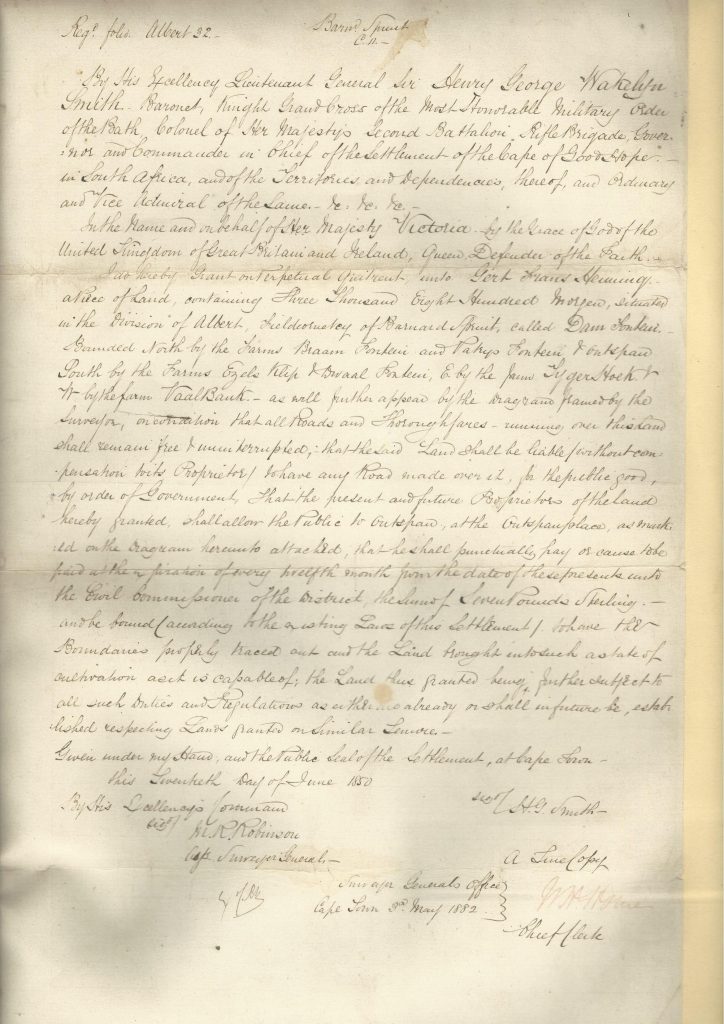 Regd. folio Albert 22.-
Barnd. Spruit
C.11.-
By His Excellency Lieutenant General Sir Henry George Wakelyn
Smith. Baronet, Knight Grand Cross of the Most Honorable Military Order
of the Bath, Colonel of Her Majesty's Second Battalion, Rifle Brigade, Gover-
:nor and Commander in Chief of the Settlement of the Cape of Good Hope.-
in South Africa, and of the Territories and Dependencies, thereof, and Ordinary
and Vice Admiral of the Same.- &c. &c. &c-
In the Name and on behalf of Her Majesty Victoria by the Grace of God of the
United Kingdom of Great Britain and Ireland, Queen, Defender of the Faith.-
I do hereby Grant on Perpetual Quitrent, unto Gert Frans Henning.
a Piece of Land, containing Three Thousand Eight Hundred Morgen, situated
in the Division of Albert, Fieldcornetcy of Barnard Spruit, called Dam Fontein.-
Bounded North by the Farms Braam Fontein and Palrys Fontein & outspan
South by the Farms Ezels Klip & Dwaal Fontein, E. by the farm Tyger Hoek &
W by the farm Vaal Bank.- as will further appear by the Diagram framed by the
Surveyor, on condition that all Roads and Thoroughfares - running over this land
shall remain free & uninterrupted,- that the said Land shall be liable (without com-
pensation to its Proprietor) to have any Road made over it, for the public good,
by order of Government, That the present and future Proprietors of the land
hereby granted, shall allow the Public to Outspan, at the Outspan place, as mark-
ed on the Diagram hereunto attached, that he shall punctually pay or cause to be
paid at the expiration of every twelfth month from the date of these presents unto
the Civil Commissioner of the District the Sum of Seven Pounds Sterling.-
and be bound (according to the existing Laws of this Settlement). to have the
Boundaries properly traced out and the Land brought into such a state of
cultivation as it is capable of; the Land thus granted being further subject to
all such Duties and Regulations as either are already or shall in future be, estab-
lished respecting Lands granted on Similar Tenure.-
Given under my Hand, and the Public Seal of the Settlement, at Cape Town -
this Twentieth Day of June 1850
By His Excellency's Command
sigd/ H.G. Smith-
sigd/ M.R. Robinson
Actg. Surveyor General.-
A True Copy
Surveyor Generals Office
Cape Town 3d. May 1882
Chief Clerk